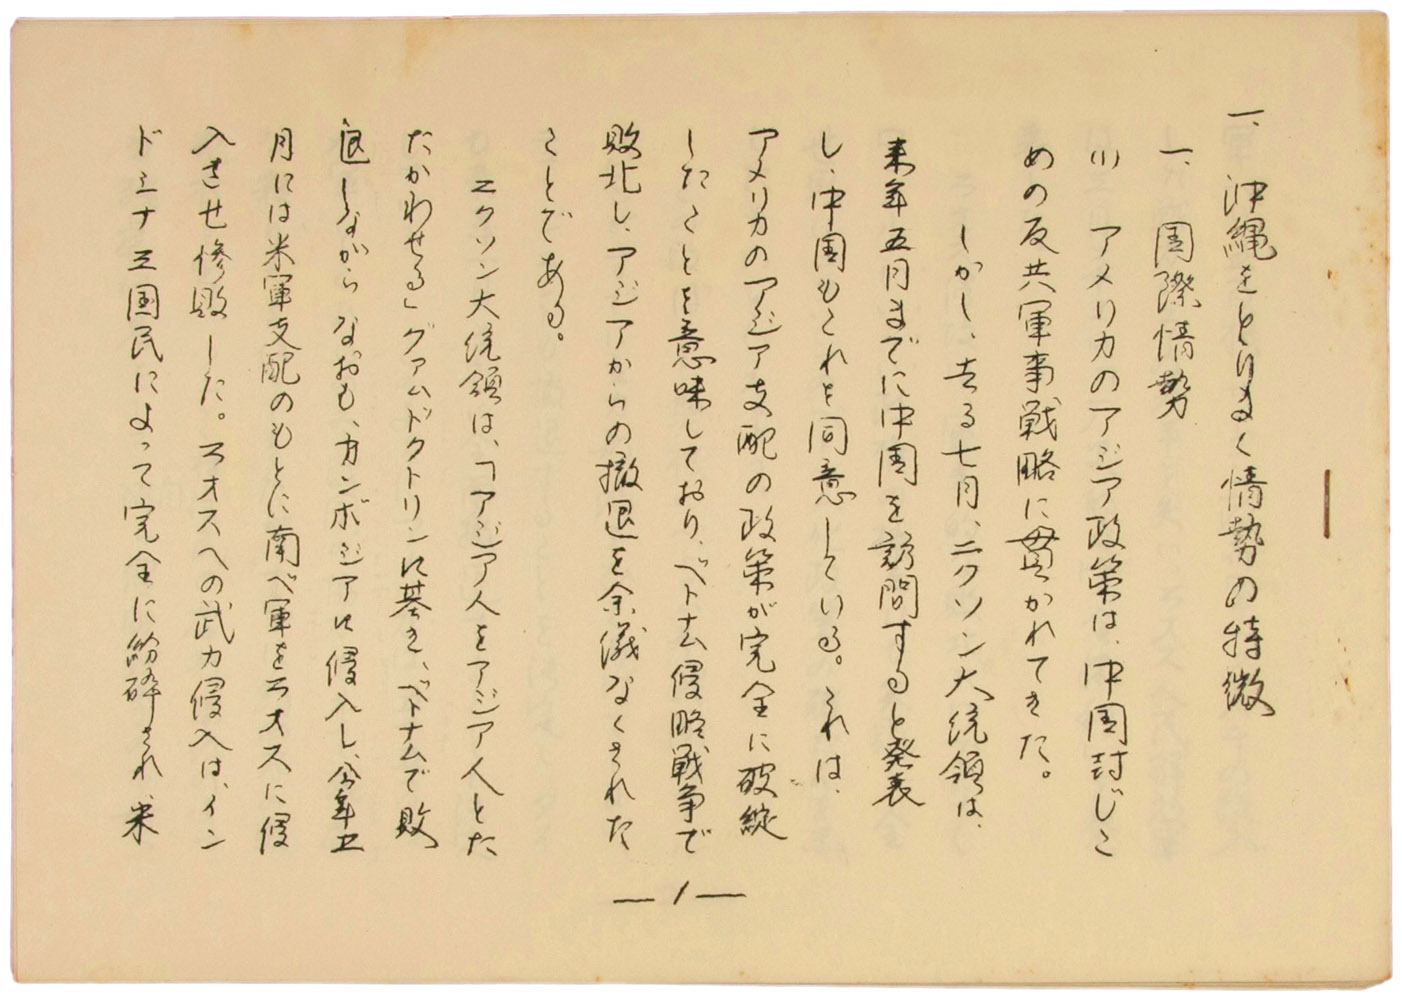 一、沖縄をとりまく情勢の特徴
一、国際情勢
(1) アメリカのアジア政策は、中国封じこ
めの反共軍事戦略に貫かれてきた。
しかし、去る七月、ニクソン大統領は、
来年五月までに中国を訪問すると発表
し、中国もこれを同意している。これは、
アメリカのアジア支配の政策が完全に破綻
したことを意味しており、ベトナム侵略戦争で
敗北し、アジアからの撤退を余儀なくされた
ことである。
ニクソン大統領は、「アジア人をアジア人とた
たかわせる」グァムドクトリンに基き、ベトナムで敗
退しながらなおも、カンボジアに侵入し、今年二
月には米軍支配のもとに南ベ軍をラオスに侵
入させ惨敗した。ラオスへの武力侵入は、イン
ドシナ三国民によって完全に紛砕され、米
—1—